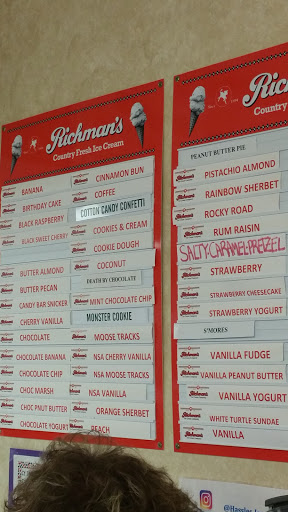 Richman's
Country Fresh Ice Cream
BANANA
BIRTHDAY CAKE
BLACK RASPBERRY
BLACK SWEET CHERRY
BUTTER ALMOND
BUTTER PECAN
CANDY BAR SNICKER
CHERRY VANILLA
CHOCOLATE
CHOCOLATE BANANA
CHOCOLATE CHIP
CHOC MARSH
CHOC PNUT BUTTER
CHOCOLATE YOGURT
CINNAMON BUN
COFFEE
COTTON CANDY CONFETTI
COOKIES & CREAM
COOKIE DOUGH
COCONUT
DEATH BY CHOCOLATE
MINT CHOCOLATE CHIP
MONSTER COOKIE
MOOSE TRACKS
NSA CHERRY VANILLA
NSA MOOSE TRACKS
NSA VANILLA
ORANGE SHERBET
PEACH
Richman's
Country
PEANUT BUTTER PIE
PISTACHIO ALMOND
RAINBOW SHERBET
ROCKY ROAD
RUM RAISIN
SALTY-CARAMEL-PRETZEL
STRAWBERRY
STRAWBERRY CHEESECAKE
STRAWBERRY YOGURT
S'MORES
VANILLA FUDGE
VANILLA PEANUT BUTTER
VANILLA YOGURT
WHITE TURTLE SUNDAE
VANILLA